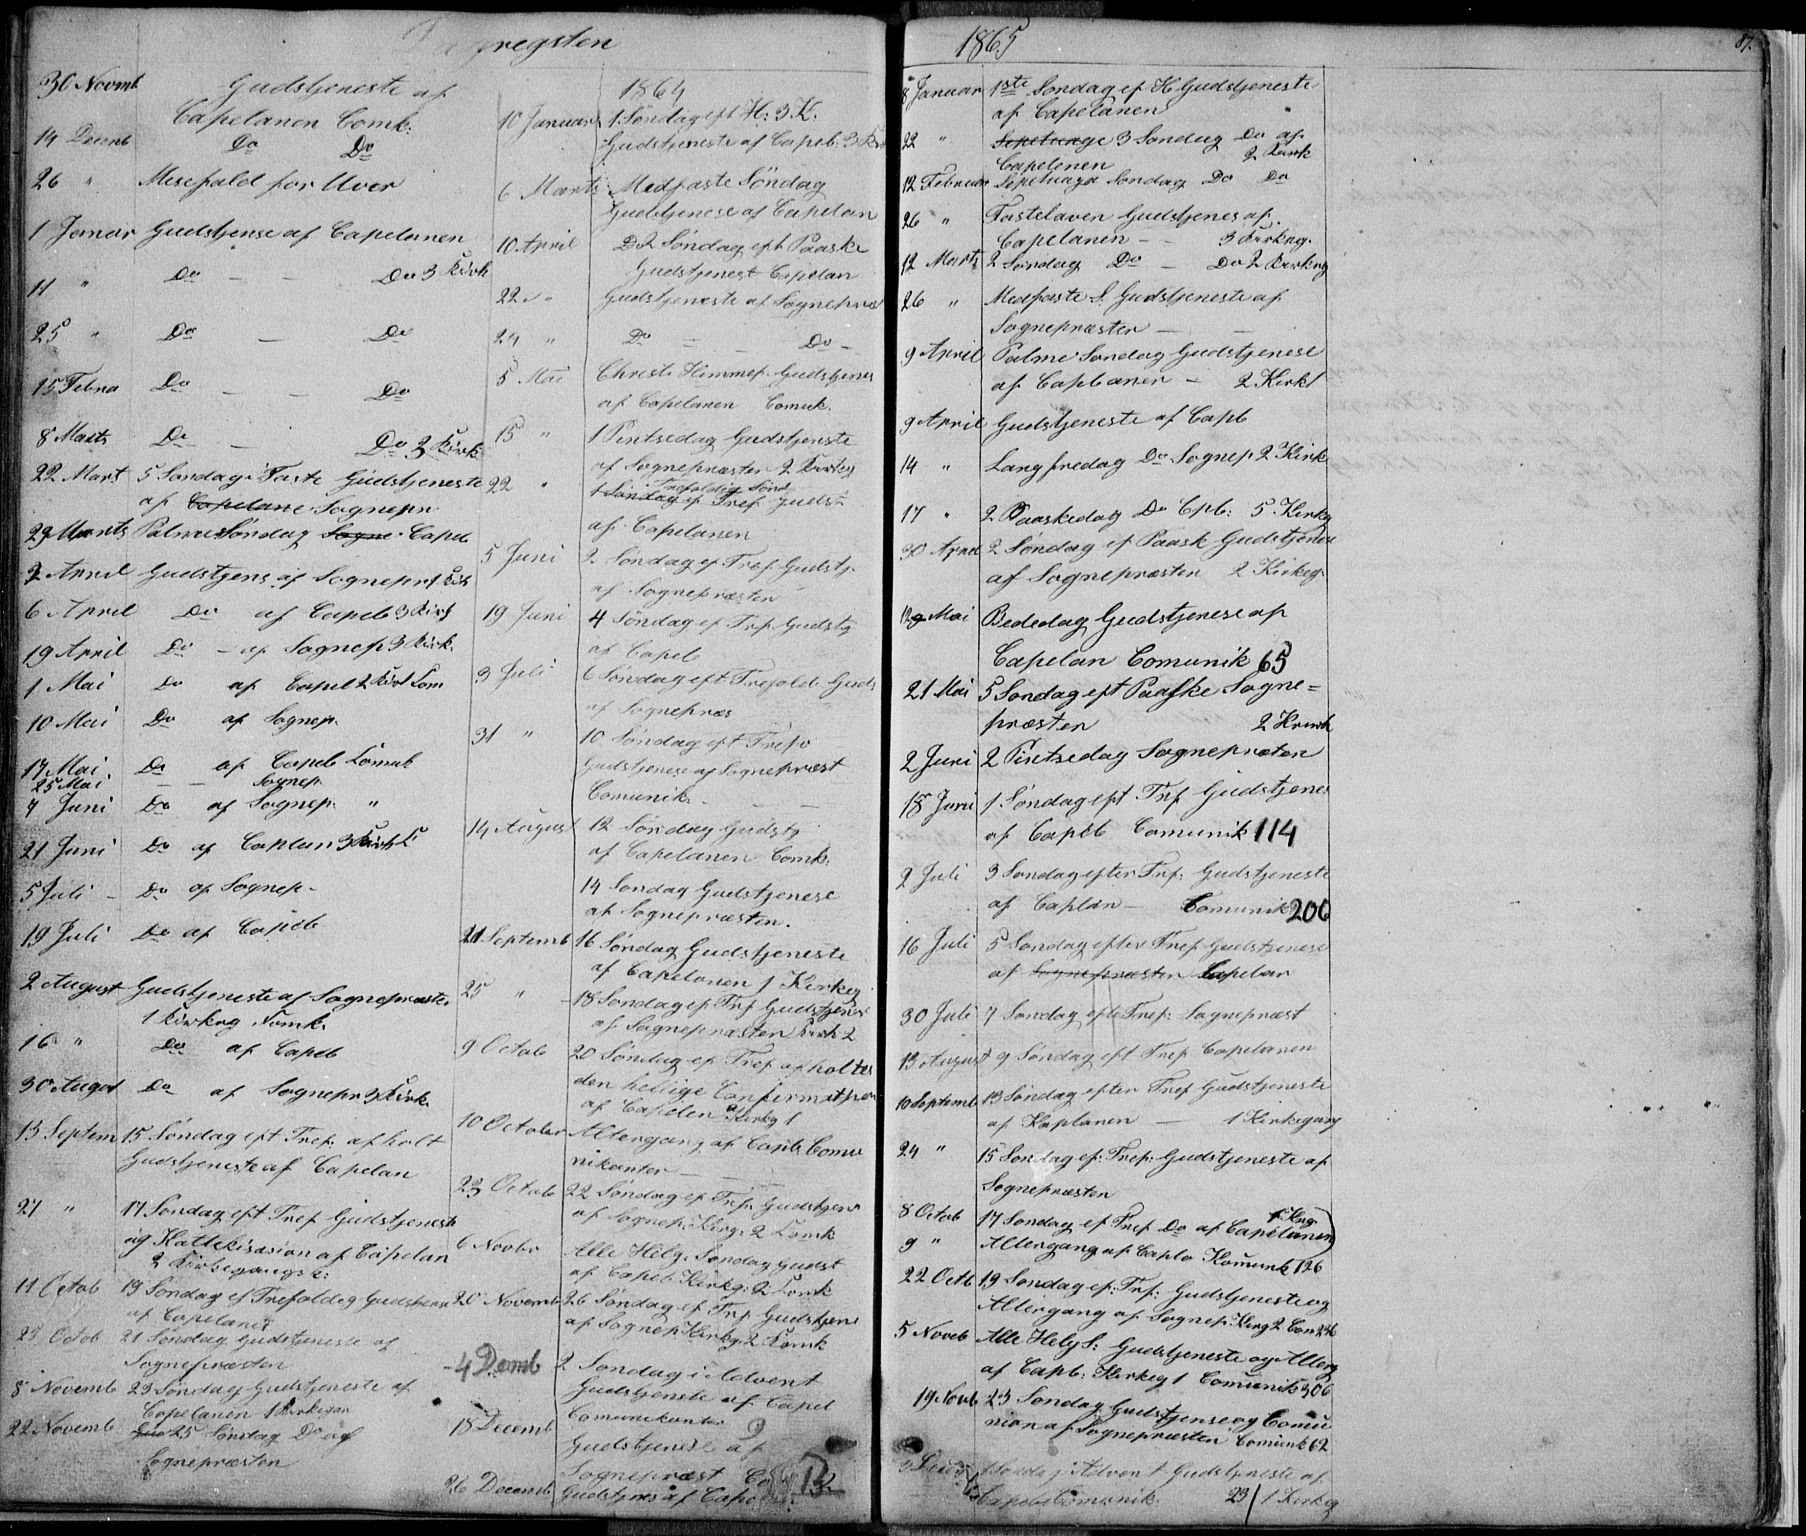 Dagregsten
30 Novmb Gudstjeneste af
Capelanen Comk.
14 Decmb Do Do
26 " Mesefald for Uver
1 Januar Gudstjense af Capelanen
11 " Do — — Do 3 Kirk
25 " Do — Do
15 Febra Do — — Do
8 Marts Do — Do 3 Kirk
22 Mart 5 Søndag i Faste Gudstjeneste
af Capelane Sognepr
29 Marts Palme Søndag Sogne Capeb
2 April Gudstjens af Sognepr 1 Kirk
6 April Do af Capeb 3 Kirk
19 April Do — af Sognep 3 Kirk.
1 Mai Do af Capel 2 Kirk Com
10 Mai Do af Sognep.
17 Mai Do af Capeb Comuk
25 Mai — — Sognep
7 Juni Do af Sognep. "
21 Juni Do af Caplan 3 Kirk C
5 Juli – Do af Sognep –
19 Juli Do af Capeb
2 August Gudstjeneste af Sognepræsten
1 Kirkeg Komk.
16 " Do af Capeb
30 Augst Do af Sognepr 3 Kirk.
13 Septem 15 Søndag eft Tref. afholt
Gudstjeneste af Capelan
27 " 17 Søndag eft Tref Gudstjenest
og Kattekisasion af Capelan
2 Kirkegangsk:
11 Octob 19 Søndag ef Trefoldig Gudstjens
af Capelanen
25 Octob 21 Søndag Gudstjeneste af
Sognepræsten
8 Novemb 23 Søndag Gudstjeneste af
Capelanen 1 Kirkegan
22 Novemb 25 Søndag Do af
Sognepræsten
1864
10 Januar 1 Søndag eft H. 3 K.
Gudstjeneste af Capeb. 3 Kir
6 Marts Medfaste Søndag
Gudstjenese af Capelan
10 April D 2 Søndag eft Paaske
Gudstjenest Capelan
22 " Gudstjeneste af Sognepræs
24 " Do — — Do –
5 Mai Christi Himmef. Gudstjenes
af Capelanen Comuk.
15 " 1 Pintsedag Gudstjenste
af Sognepræsten 2 Kirkeg
Trefoldig Sønd
22 " 1 Søndag ef Tref Gudst
af Capelanen
5 Juni 2 Søndag ef Tref Gudstj.
af Sognepræsten
19 Juni 4 Søndag ef Tref Gudstj
af Capeb
3 Juli 6 Søndag eft Trefold. Guds
af Sognepræs
31 " 10 Søndag eft Trefo
Gudstjenese af Sognepræst
Comunik. — —
14 August 12 Søndag Gudstj
af Capelanen Comk.
14 Søndag Gudstjenese
af Sognepræsten.
21 Septemb 16 Søndag Gudstjeneste
af Capelanen 1 Kirkeg
25 " 18 Søndag ef Tref Gudstjenes
af Sognepræsten Kirk 2
9 Octob 20 Søndag ef Tref afholtes
den hellige Confirmatjon
af Capelen Kirkg 1
10 October Altergang af Capb. Comu
nikanter —
23 Octob 22 Søndag ef Tref. Gudstjens
af Sognep. Kirg. 2 Comk
6 Novbr Alle Helg. Søndag Gudst
af Capeb. Kirkg. 2 Comk
20 Novemb 26 Søndag ef Tref Gudstjens
af Sognep Kirkg. 2 Komk
4 Decmb 2 Søndag i Advent
Gudstjeneste af Capel
Comunikanter 2
18 Decemb Gudstjenese af
Sognepræst
26 Decemb Gudstjnes af Capb
1865
87.
8 Januar 1ste Søndag ef H Gudstjeneste
af Capelanen
22 " Sepetuage 3 Søndag Do af
Capelanen 2 Kirk
12 Februar Sepetuaga Søndag Do Do
26 " Fastelaven Gudstjenes af
Capelanen — — 3 Kirkeg.
12 Marts 2 Søndag Do — Do 2 Kirkeg
26 " Medfaste S. Gudstjeneste af
Sognepræsten — —
9 April Palme Søndag Gudstjenese
af Caplaner — 2 Kirk
9 April Gudstjeneste af Capb
14 " Langfredag Do Sognep 2 Kirk
17 " 2 Paaskedag Do Cpb: 5 Kirkg
30 April 2 Søndag ef Paask Gudstjenes
af Sognepræsten 2 Kirkeg.
12 Mai Bededag Gudstjenese af
Capelan Comunik 65
21 Mai 5 Søndag eft Paaske Sogne=
præsten 2 Kirk
2 Juni 2 Pintsedag Sognepræten
18 Juni 1 Søndag eft Tref Gudstjenes
af Capeb Comunik 114
2 Juli 3 Søndag efter Tref: Gudstjeneste
af Caplan — Comunik 206
16 Juli 5 Søndag efter Tref Gudstjenese
af Sognepræsten Capelan
30 Juli 7 Søndag efte Tref: Sognepræst
13 August 9 Søndag eft Tref Capelanen
10 Septemb 13 Søndag efter Tref Gudstjeneste
af Kaplanen — 1 Kirkegang
24 " 15 Søndag ef: Tref: Gudstjeneste af
Sognepræsten
8 Octob 17 Søndag ef Tref Do af Capelanen 1 Krg.
9 " Altergang af Capla Komunk 126
22 Octb 19 Søndag ef: Tref: Gudstjeneste og
Altergang af Sognep. Kirg 2 Com 246
5 Noveb Alle Helg S: Gudstjeneste og Alterg
af Capb: Kirkeg 1 Comunik 306
19 Novb 23 Søndag Gudstjense og Comu
nion af Sognepræsten Comunk 62
Søndag i Advent Gudstjeneste af
Capeb Comunik. 23 / 1 Kirkeg